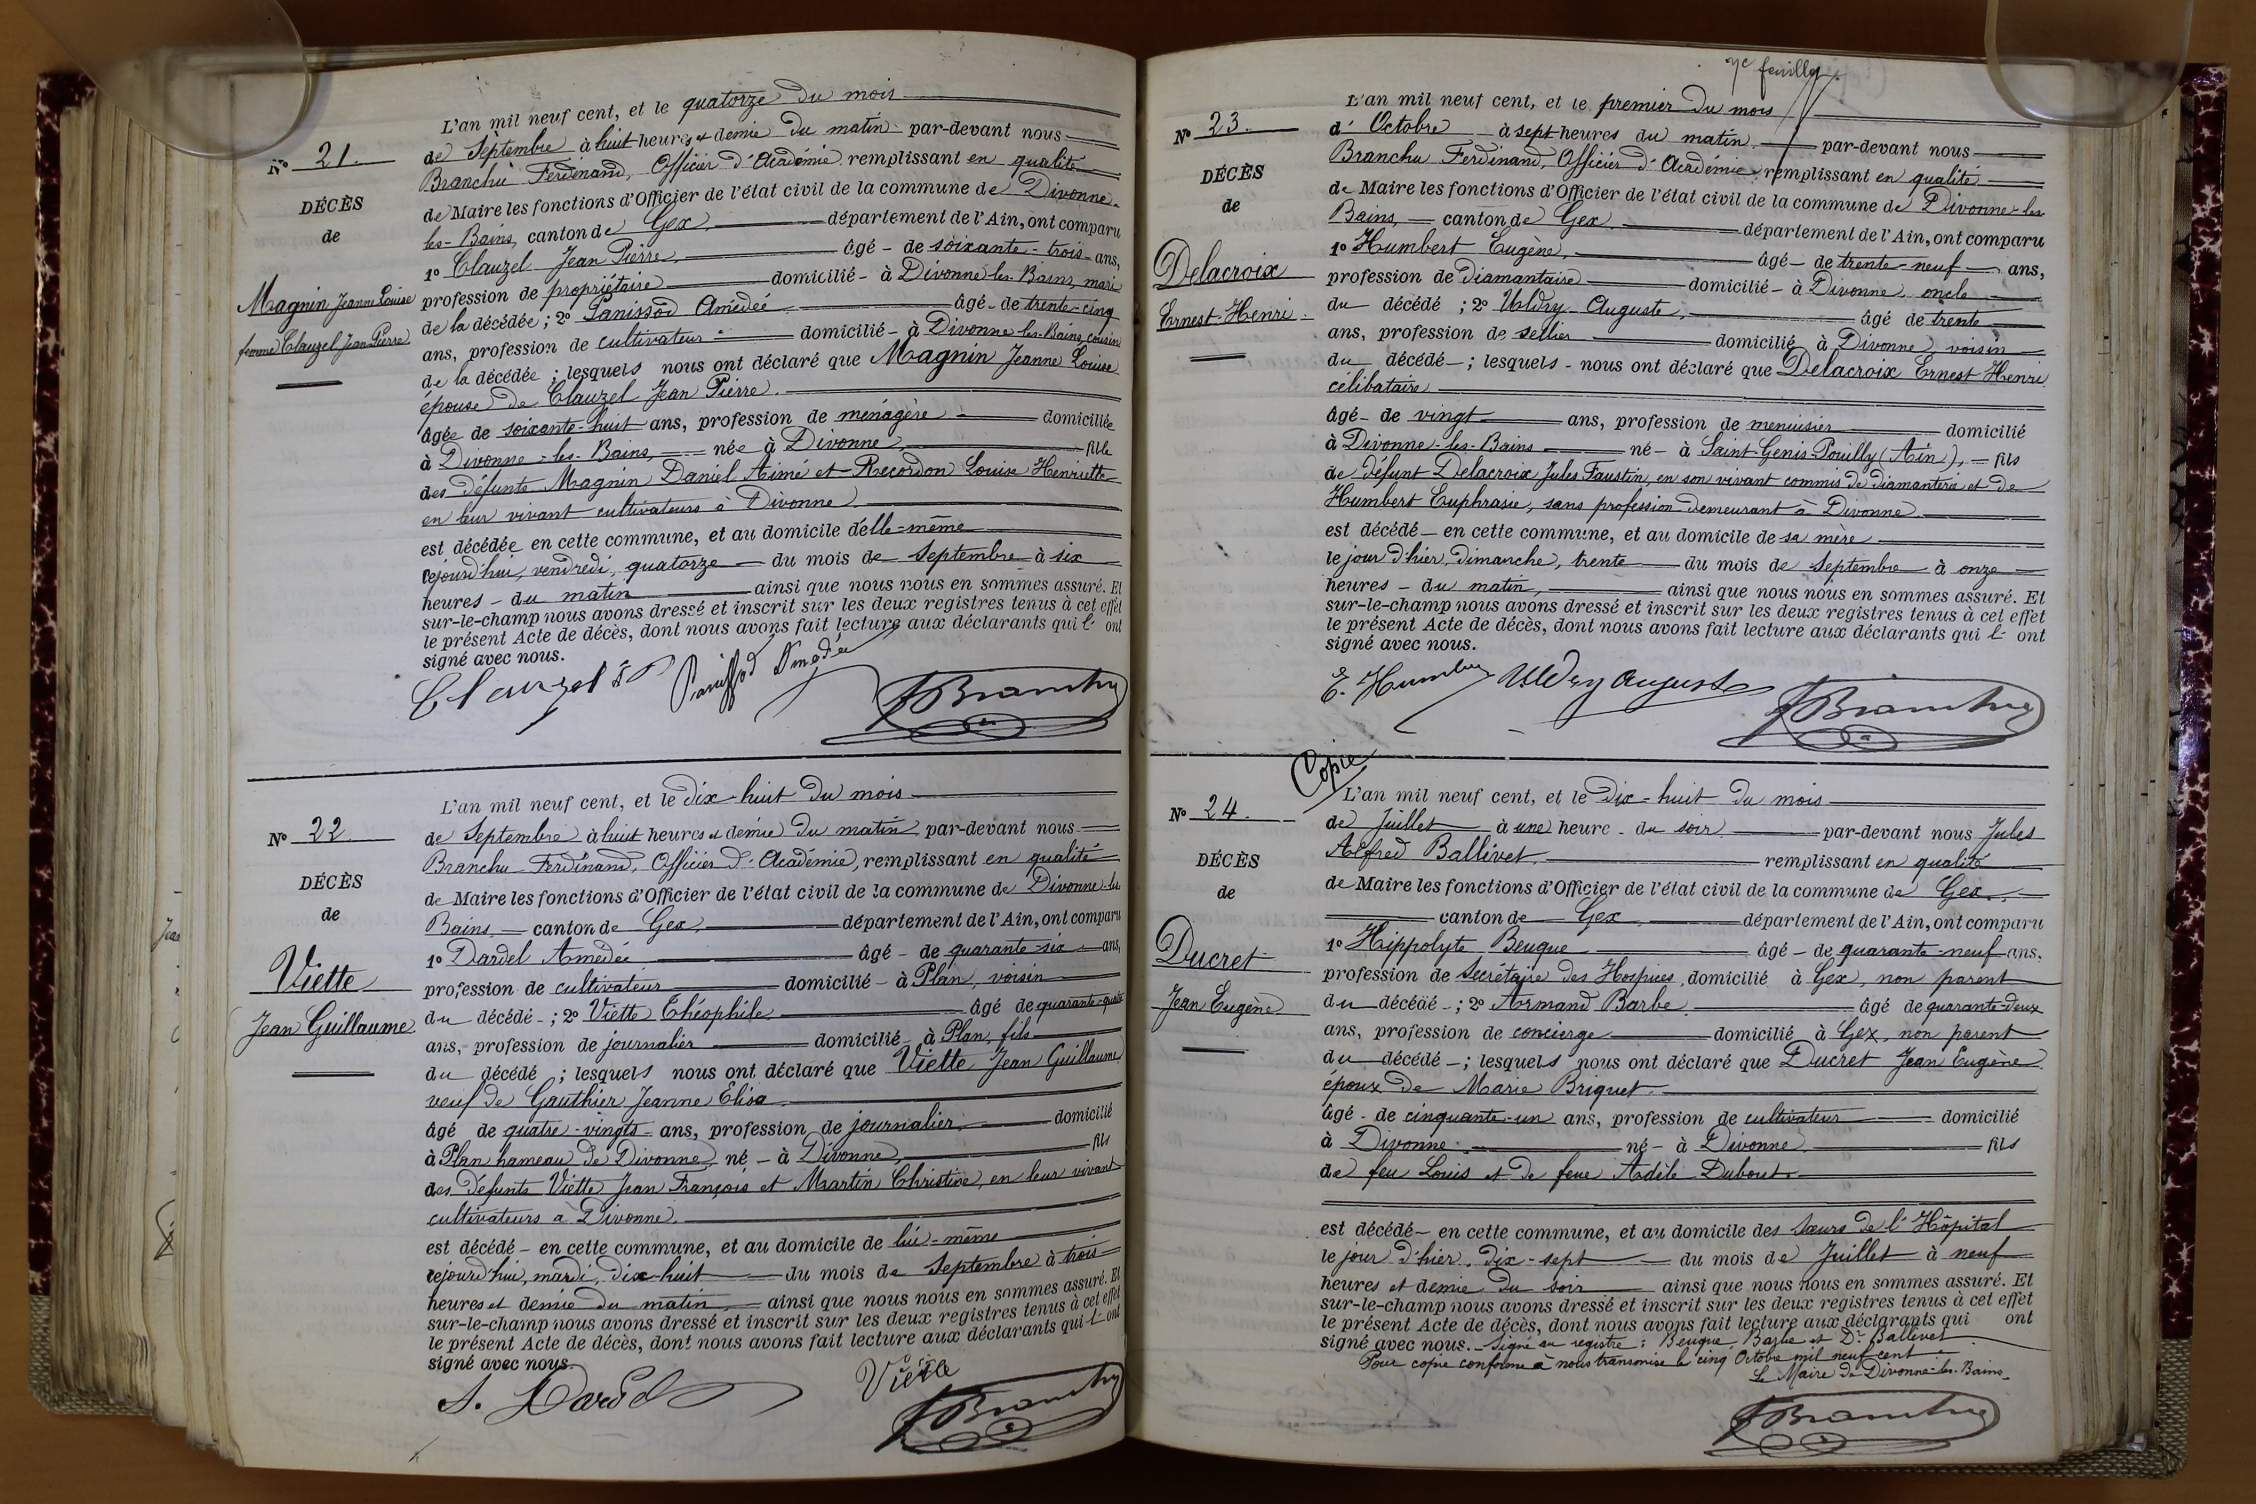 L'an mil neuf cent, et le quatorze du mois
No 21.
de Septembre à huit heures et demie du matin par-devant nous
Branchu Ferdinand, Officier d'Académie remplissant en qualité
DÉCÈS
de Maire les fonctions d'Officier de l'état civil de la commune de Divonne-
de
les-Bains, canton de Gex, département de l'Ain, ont comparu
1o Clauzel Jean Pierre âgé de soixante-trois ans,
Magnin Jeanne Louise
profession de propriétaire domicilié à Divonne-les-Bains, mari
femme Clauzel Jean Pierre
de la décédée ; 2o Panissod Amédée âgé de trente-cinq
ans, profession de cultivateur domicilié à Divonne-les-Bains, cousin
de la décédée ; lesquels nous ont déclaré que Magnin Jeanne Louise
épouse de Clauzel Jean Pierre.
âgée de soixante-huit ans, profession de ménagère domiciliée
à Divonne-les-Bains, née à Divonne fille
des défunts Magnin Daniel Aimé et Recordon Louise Henriette
en leur vivant cultivateurs à Divonne
est décédée en cette commune, et au domicile d'elle-même
cejourd'hui, vendredi, quatorze du mois de Septembre à six
heures du matin ainsi que nous nous en sommes assuré. Et
sur-le-champ nous avons dressé et inscrit sur les deux registres tenus à cet effet
le présent Acte de décès, dont nous avons fait lecture aux déclarants qui l' ont
signé avec nous.
Clauzel JP Panissod Amédée FBranchu
L'an mil neuf cent, et le dix-huit du mois
No 22.
de Septembre à huit heures et demie du matin par-devant nous
Branchu Ferdinand, Officier d'Académie, remplissant en qualité
DÉCÈS
de Maire les fonctions d'Officier de l'état civil de la commune de Divonne-les
de
Bains, canton de Gex, département de l'Ain, ont comparu
1o Dardel Amédée âgé de quarante-six ans,
Viette
profession de cultivateur domicilié à Plan, voisin
Jean Guillaume
du décédé ; 2o Viette Théophile âgé de quarante-quatre
ans, profession de journalier domicilié à Plan, fils
du décédé ; lesquels nous ont déclaré que Viette Jean Guillaume
veuf de Gauthier Jeanne Elisa
âgé de quatre-vingts ans, profession de journalier, domicilié
à Plan hameau de Divonne, né à Divonne, fils
des défunts Viette Jean François et Martin Christine, en leur vivant
cultivateurs à Divonne.
est décédé en cette commune, et au domicile de lui-même
cejourd'hui, mardi, dix-huit du mois de Septembre à trois
heures et demie du matin, ainsi que nous nous en sommes assuré. Et
sur-le-champ nous avons dressé et inscrit sur les deux registres tenus à cet effet
le présent Acte de décès, dont nous avons fait lecture aux déclarants qui l' ont
signé avec nous.
A. Dardel Viette FBranchu
7e feuillet
L'an mil neuf cent, et le premier du mois
No 23.
d' Octobre à sept heures du matin par-devant nous
Branchu Ferdinand, Officier d'Académie remplissant en qualité
DÉCÈS
de Maire les fonctions d'Officier de l'état civil de la commune de Divonne-les
de
Bains, canton de Gex département de l'Ain, ont comparu
1o Humbert Eugène, âgé de trente-neuf ans,
Delacroix
profession de diamantaire domicilié à Divonne, oncle
Ernest Henri
du décédé ; 2o Uldry Auguste, âgé de trente
ans, profession de sellier domicilié à Divonne, voisin
du décédé ; lesquels nous ont déclaré que Delacroix Ernest Henri
célibataire
âgé de vingt ans, profession de menuisier domicilié
à Divonne-les-Bains né à Saint-Genis-Pouilly (Ain), fils
de défunt Delacroix Jules Faustin, en son vivant commis de diamanterie et de
Humbert Euphrasie, sans profession demeurant à Divonne.
est décédé en cette commune, et au domicile de sa mère
le jour d'hier, dimanche, trente du mois de Septembre à onze
heures du matin, ainsi que nous nous en sommes assuré. Et
sur-le-champ nous avons dressé et inscrit sur les deux registres tenus à cet effet
le présent Acte de décès, dont nous avons fait lecture aux déclarants qui l' ont
signé avec nous.
E. Humbert Uldry Auguste FBranchu
Copie
L'an mil neuf cent, et le dix-huit du mois
No 24.
de Juillet à une heure du soir par-devant nous Jules
Alfred Ballivet remplissant en qualité
DÉCÈS
de Maire les fonctions d'Officier de l'état civil de la commune de Gex.
de
canton de Gex, département de l'Ain, ont comparu
1o Hippolyte Beuque âgé de quarante-neuf ans,
Ducret
profession de Secrétaire des Hospices, domicilié à Gex, non parent
Jean Eugène
du décédé ; 2o Armand Barbe âgé de quarante-deux
ans, profession de concierge domicilié à Gex, non parent
du décédé ; lesquels nous ont déclaré que Ducret Jean Eugène
époux de Marie Briquet.
âgé de cinquante-un ans, profession de cultivateur domicilié
à Divonne né à Divonne fils
de feu Louis et de feue Adèle Dubout.
est décédé en cette commune, et au domicile des Sœurs de l'Hôpital
le jour d'hier, dix-sept du mois de Juillet à neuf
heures et demie du soir ainsi que nous nous en sommes assuré. Et
sur-le-champ nous avons dressé et inscrit sur les deux registres tenus à cet effet
le présent Acte de décès, dont nous avons fait lecture aux déclarants qui ont
signé avec nous. Signé au registre : Beuque, Barbe et Dr Ballivet
Pour copie conforme à nous transmise le cinq Octobre mil neuf cent.
Le Maire de Divonne-les-Bains.
FBranchu